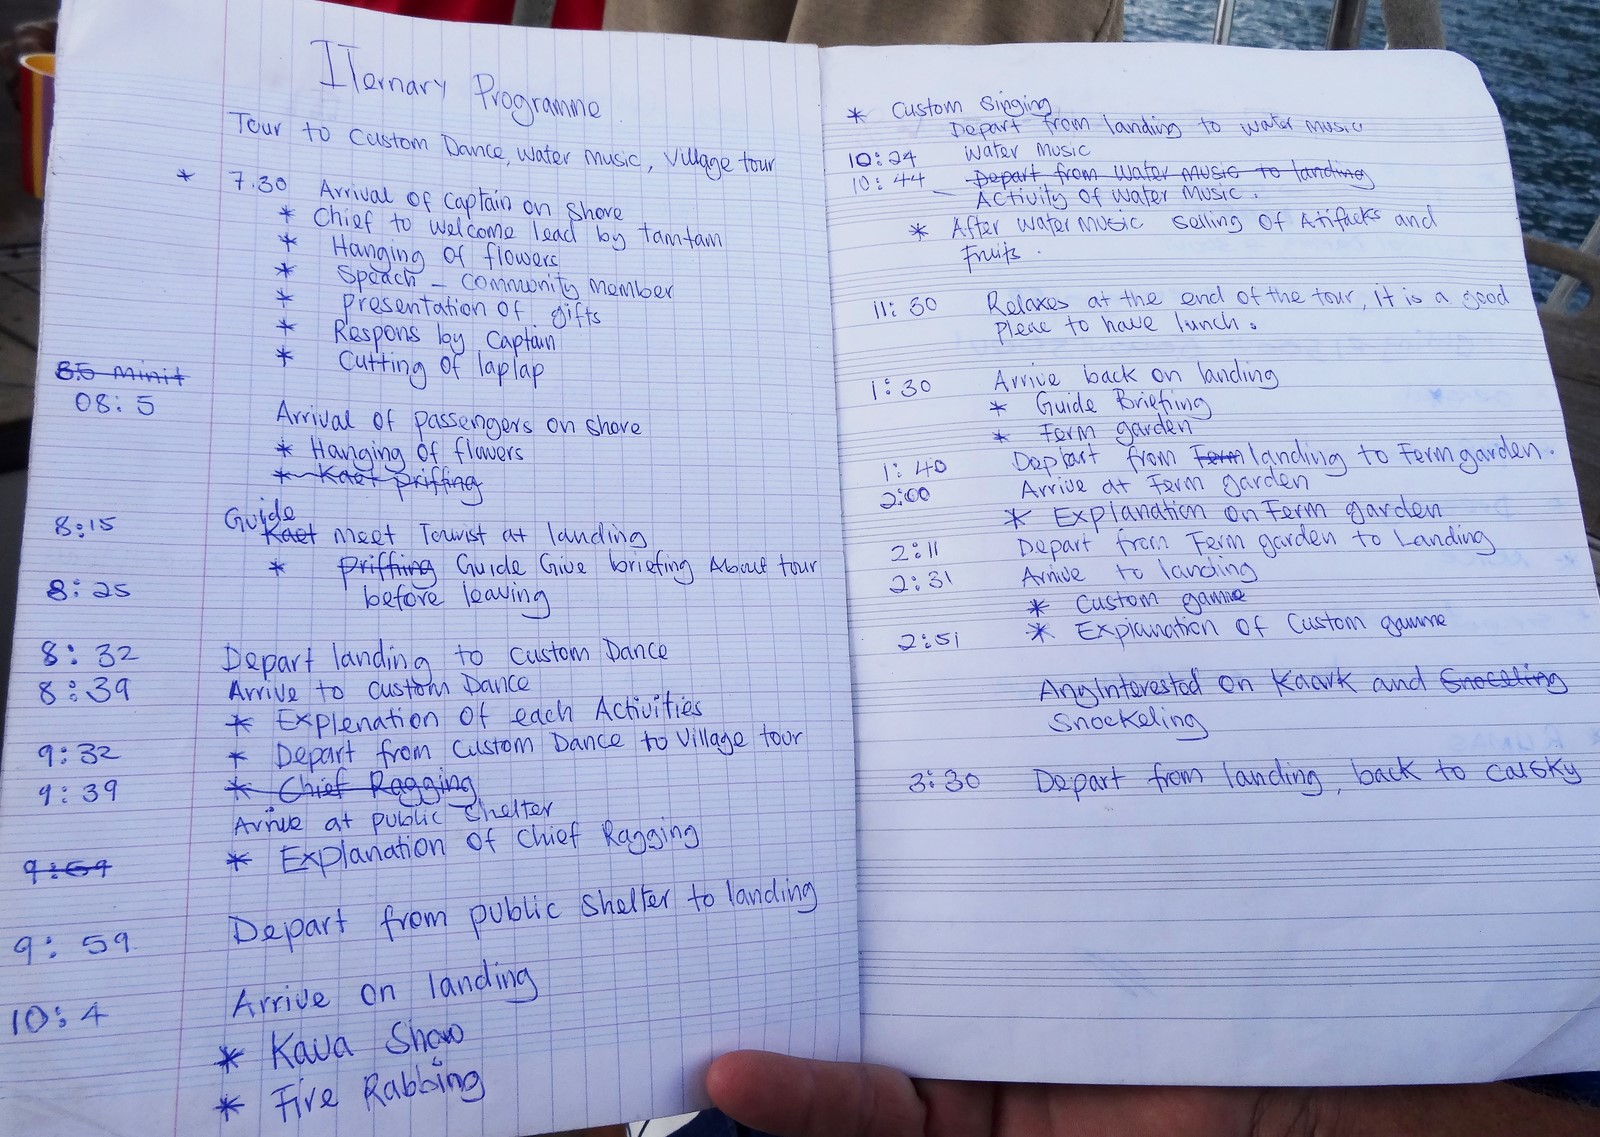 ITernary Programme
Tour to Custom Dance, Water music, Village tour
* 7.30 Arrival of Captain on Shore
* Chief to Welcome lead by tamtam
* Hanging of flowers
* Speach - community member
* presentation of gifts
* Respons by Captain
* Cutting of laplap
8.5 Minit
08:5 Arrival of passengers on shore
* Hanging of flowers
* Kaet priffing
8:15 Guide
Kaet meet Tourist at landing
* priffing Guide Give briefing About tour
8:25 before leaving
8:32 Depart landing to Custom Dance
8:39 Arrive to custom Dance
* Explenation of each Activities
9:32 * Depart from Custom Dance to Village tour
9:39 * Chief Ragging
Arrive at public Shelter
* Explanation of Chief Ragging
9:59
9:59 Depart from public Shelter to landing
10:4 Arrive on landing
* Kava Show
* Fire Rabbing
* Custom Singing
Depart from landing to water music
10:24 Water Music
10:44 Depart from Water music to landing
- Activity of Water Music.
* After Water music Selling of Atifacks and
Fruits.
11:30 Relaxes at the end of the tour, it is a good
pleac to have lunch.
1:30 Arrive back on landing
* Guide Briefing
* Ferm garden
1:40 Depart from Ferm landing to Ferm garden.
2:00 Arrive at Ferm garden
* Explanation on Ferm garden
2:11 Depart from Ferm garden to Landing
2:31 Arrive to landing
* Custom gamne
2:51 * Explanation of Custom gamne
Any Interested on Kaark and Snoceling
Snockeling
3:30 Depart from landing, back to calsky